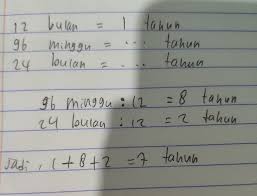 12 bulan = 1 tahun
96 minggu = ... tahun
24 bulan = ... tahun
96 minggu : 12 = 8 tahun
24 bulan : 12 = 2 tahun
Jadi, 1 + 8 + 2 = 7 tahun